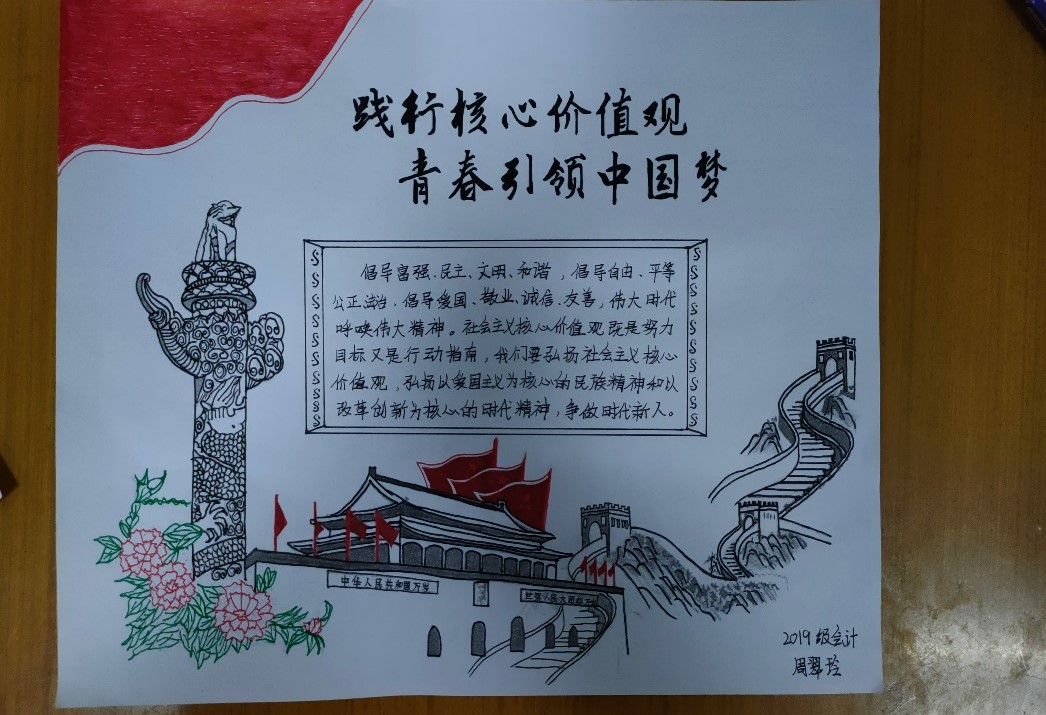 践行核心价值观
青春引领中国梦
倡导富强、民主、文明、和谐，倡导自由、平等
公正法治，倡导爱国、敬业、诚信、友善，伟大时代
呼唤伟大精神。社会主义核心价值观既是努力
目标又是行动指南，我们要弘扬社会主义核心
价值观，弘扬以爱国主义为核心的民族精神和以
改革创新为核心的时代精神，争做时代新人。
中华人民共和国万岁
世界人民大团结万岁
2019级会计
周翠玲